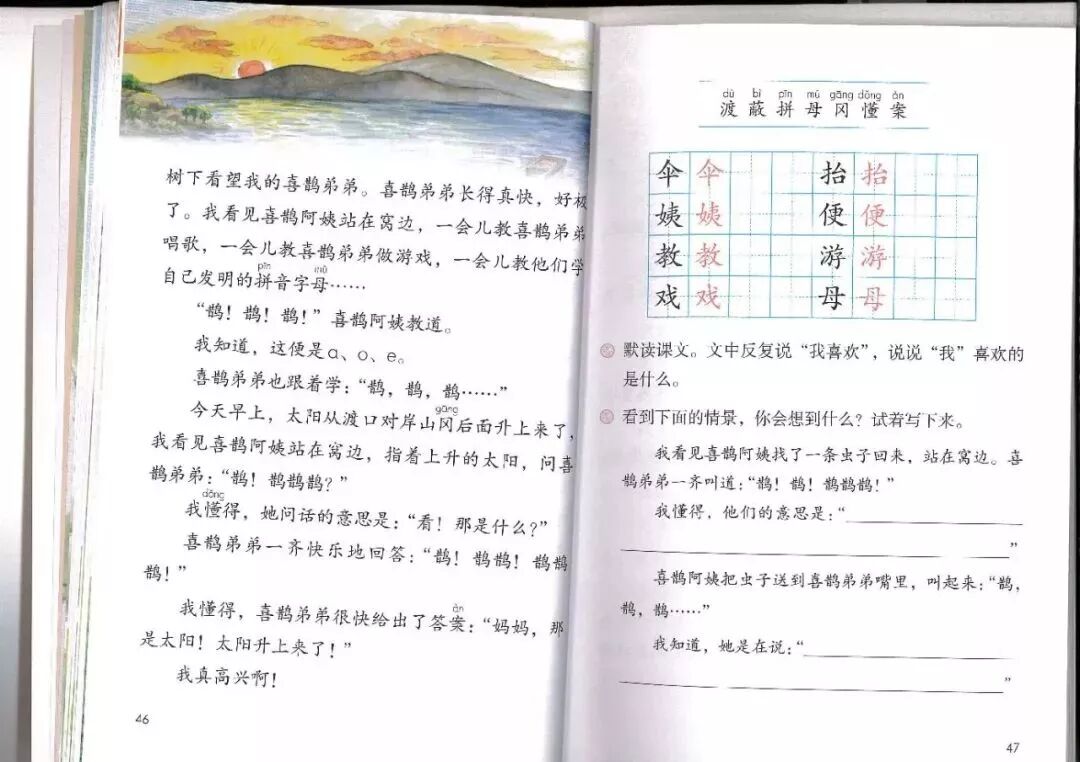 树下看望我的喜鹊弟弟。喜鹊弟弟长得真快，好极
了。我看见喜鹊阿姨站在窝边，一会儿教喜鹊弟弟
唱歌，一会儿教喜鹊弟弟做游戏，一会儿教他们学
pīn mǔ
自己发明的拼音字母……
“鹊！鹊！鹊！”喜鹊阿姨教道。
我知道，这便是a、o、e。
喜鹊弟弟也跟着学：“鹊，鹊，鹊……”
gāng
今天早上，太阳从渡口对岸山冈后面升上来了，
我看见喜鹊阿姨站在窝边，指着上升的太阳，问喜
鹊弟弟：“鹊！鹊鹊鹊？”
dǒng
我懂得，她问话的意思是：“看！那是什么？”
喜鹊弟弟一齐快乐地回答：“鹊！鹊鹊！鹊鹊
鹊！”
àn
我懂得，喜鹊弟弟很快给出了答案：“妈妈，那
是太阳！太阳升上来了！”
我真高兴啊！
46
dù bì pīn mǔ gāng dǒng àn
渡 蔽 拼 母 冈 懂 案
伞 伞 抬 抬
姨 姨 便 便
教 教 游 游
戏 戏 母 母
默读课文。文中反复说“我喜欢”，说说“我”喜欢的
是什么。
看到下面的情景，你会想到什么？试着写下来。
我看见喜鹊阿姨找了一条虫子回来，站在窝边。喜
鹊弟弟一齐叫道：“鹊！鹊！鹊鹊鹊！”
我懂得，他们的意思是：“
”
喜鹊阿姨把虫子送到喜鹊弟弟嘴里，叫起来：“鹊，
鹊，鹊……”
我知道，她是在说：“
”
47